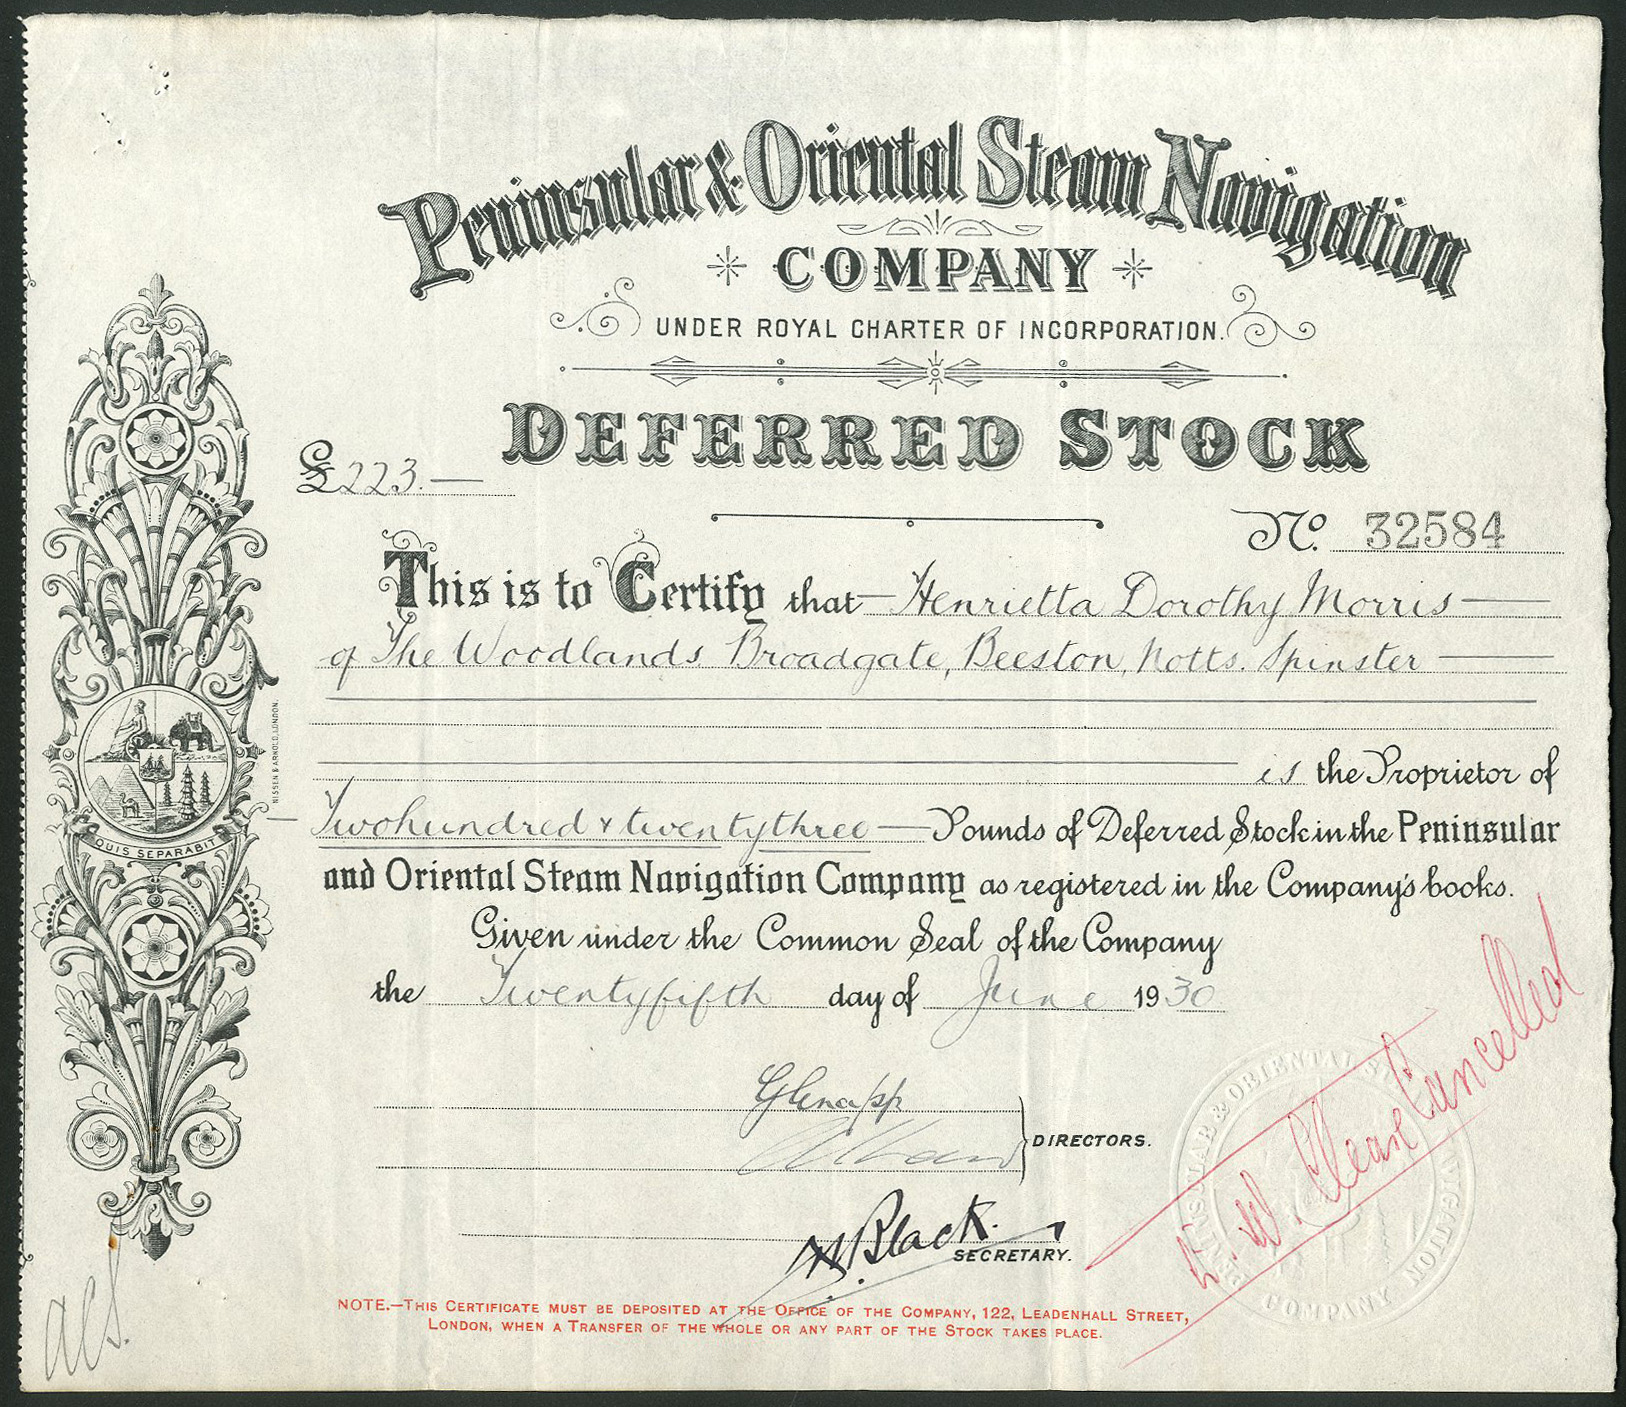 Peninsular & Oriental Steam Navigation
COMPANY
UNDER ROYAL CHARTER OF INCORPORATION.
DEFERRED STOCK
£223.—
No. 32584
This is to Certify that Henrietta Dorothy Morris
of The Woodlands Broadgate, Beeston, Notts. Spinster
is the Proprietor of
Twohundred & twentythree Pounds of Deferred Stock in the Peninsular
and Oriental Steam Navigation Company as registered in the Company's books.
Given under the Common Seal of the Company
the Twentyfifth day of June 1930
Glenapp
DIRECTORS.
Black.
SECRETARY.
NOTE.—THIS CERTIFICATE MUST BE DEPOSITED AT THE OFFICE OF THE COMPANY, 122, LEADENHALL STREET,
LONDON, WHEN A TRANSFER OF THE WHOLE OR ANY PART OF THE STOCK TAKES PLACE.
QUIS SEPARABIT
NISSEN & ARNOLD, LONDON.
Cancelled
PENINSULAR & ORIENTAL STEAM NAVIGATION
COMPANY